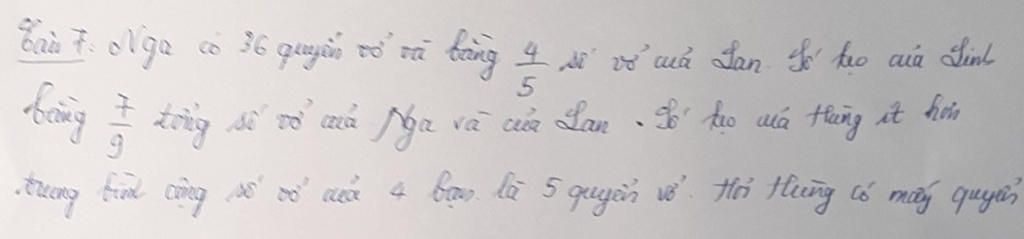 Bài 7. Nga có 36 quyển vở và bằng 4/5 số vở của Lan. Số kẹo của Linh
bằng 7/9 tổng số vở của Nga và của Lan. Số kẹo của Hùng ít hơn
trung bình cộng số vở của 4 bạn là 5 quyển vở. Hỏi Hùng có mấy quyển